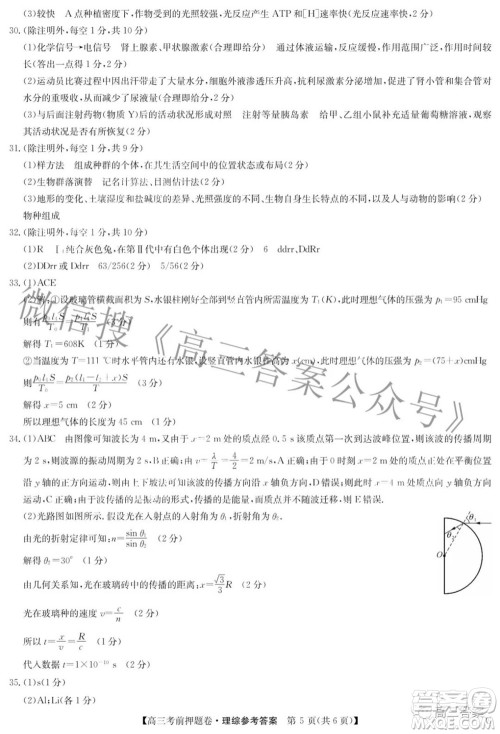 (3)较快 A点种植密度下，作物受到的光照较强，光反应产生ATP和[H]速率快(光反应速率快，2分)
30.(除注明外，每空1分，共10分)
(1)化学信号→电信号 肾上腺素、甲状腺素(2分) 通过体液运输，与靶细胞膜上的受体相互识别并结合
(答出一点得1分，共2分)
(2)运动员比赛过程中，因大量出汗，细胞外液渗透压升高，抗利尿激素分泌增加，促进了肾小管和集合管对水
分的重吸收(2分)
(3)与后面注射药物(物质Y)后的活动状况形成对照 注射等量胰岛素 给甲、乙小鼠补充适量葡萄糖溶液，观
察其活动状况是否有恢复(2分)
31.(除注明外，每空1分，共9分)
(1)样方法 组成种群的个体，在其生活空间中的位置状态或布局(2分)
(2)生物群落演替 记名计算法、目测估计法(2分)
(3)地形的变化、土壤湿度和盐碱度的差异、光照强度的不同、生物自身生长特点以及人与动物的影响(2分)
物种组成
32.(除注明外，每空1分，共10分)
(1)R Ⅰ₁纯合灰色兔，在第Ⅱ代中有白色个体出现(2分) 6 ddrr、DdRr
(2)DDrr或Ddrr 63/256(2分) 5/56(2分)
33.(1)ACE
①设玻璃管横截面积为S，水银柱刚好全部到竖直管内所需温度为T₁(K)，此时理想气体的压强为p₁=95 cmHg
解得T₁=608K (1分)
②当温度为T=111 ℃时水平管内还有水银，设竖直管内水银柱高为x cm，此时理想气体的压强为p₂=(75+x)cmHg
则有p₀l₁S/T₀=p₂(l₁-l₂+x)S/T (3分)
解得x=5 cm (2分)
所以理想气体的长度为45 cm(1分)
34.(1)ABC 由图像可知波长为4 m，又由于x=2 m处的质点经0.5 s该质点第一次到达波峰位置，所以该波的传播周期
为2 s，则波源的振动周期为2 s，由v=λ/T=4/2=2 m/s，A正确；由于此时x=2 m处的质点正在平衡位置
沿y轴的正方向运动，则由上下坡法可知该波的传播方向沿x轴负方向，D错误；则此时x=4 m处的质点沿
y轴负方向运动，形成波的传播过程中，传播的是能量，而质点不随波迁移，所以E错误.
(2)光路图如图所示.假设光在入射点的入射角为θ₁，折射角为θ₂.
由光的折射定律可知：n=sin θ₁/sin θ₂
解得θ₂=30° (1分)
由几何关系知，光在玻璃砖中的传播的距离：x=√3/3 R (1分)
光在玻璃种的速度v=c/n (2分)
所以t=x/v=R/c (1分)
代入数据t=1×10⁻¹⁰ s (2分)
θ₁
θ₂
O
35.(1)s(1分)
(2)Al；Li(各1分)
【高三考前押题卷·理综参考答案 第5页(共6页)】
微信搜《高三答案公众号》